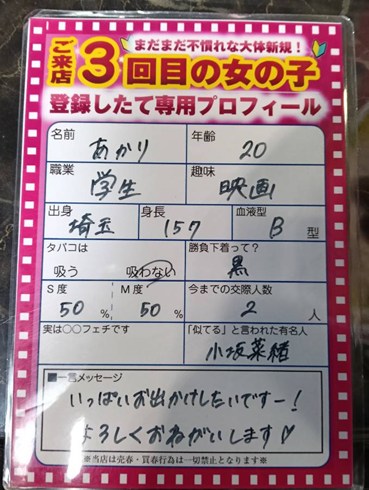 まだまだ不慣れな大体新規！
ご来店3回目の女の子
登録したて専用プロフィール
名前 あかり 年齢 20
職業 学生 趣味 映画
出身 埼玉 身長 157 血液型 B 型
タバコは 吸う 吸わない 勝負下着って？ 黒
S度 50 % M度 50 % 今までの交際人数 2 人
実は○○フェチです 「似てる」と言われた有名人 小坂菜緒
■一言メッセージ
いっぱいお出かけしたいですー！
よろしくおねがいします♡
※当店は売春・買春行為は一切禁止となります※